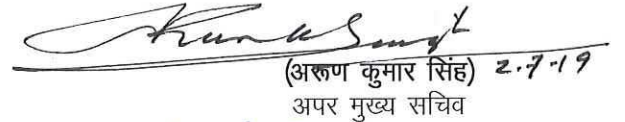 (अरूण कुमार सिंह) 2.7.19
अपर मुख्य सचिव